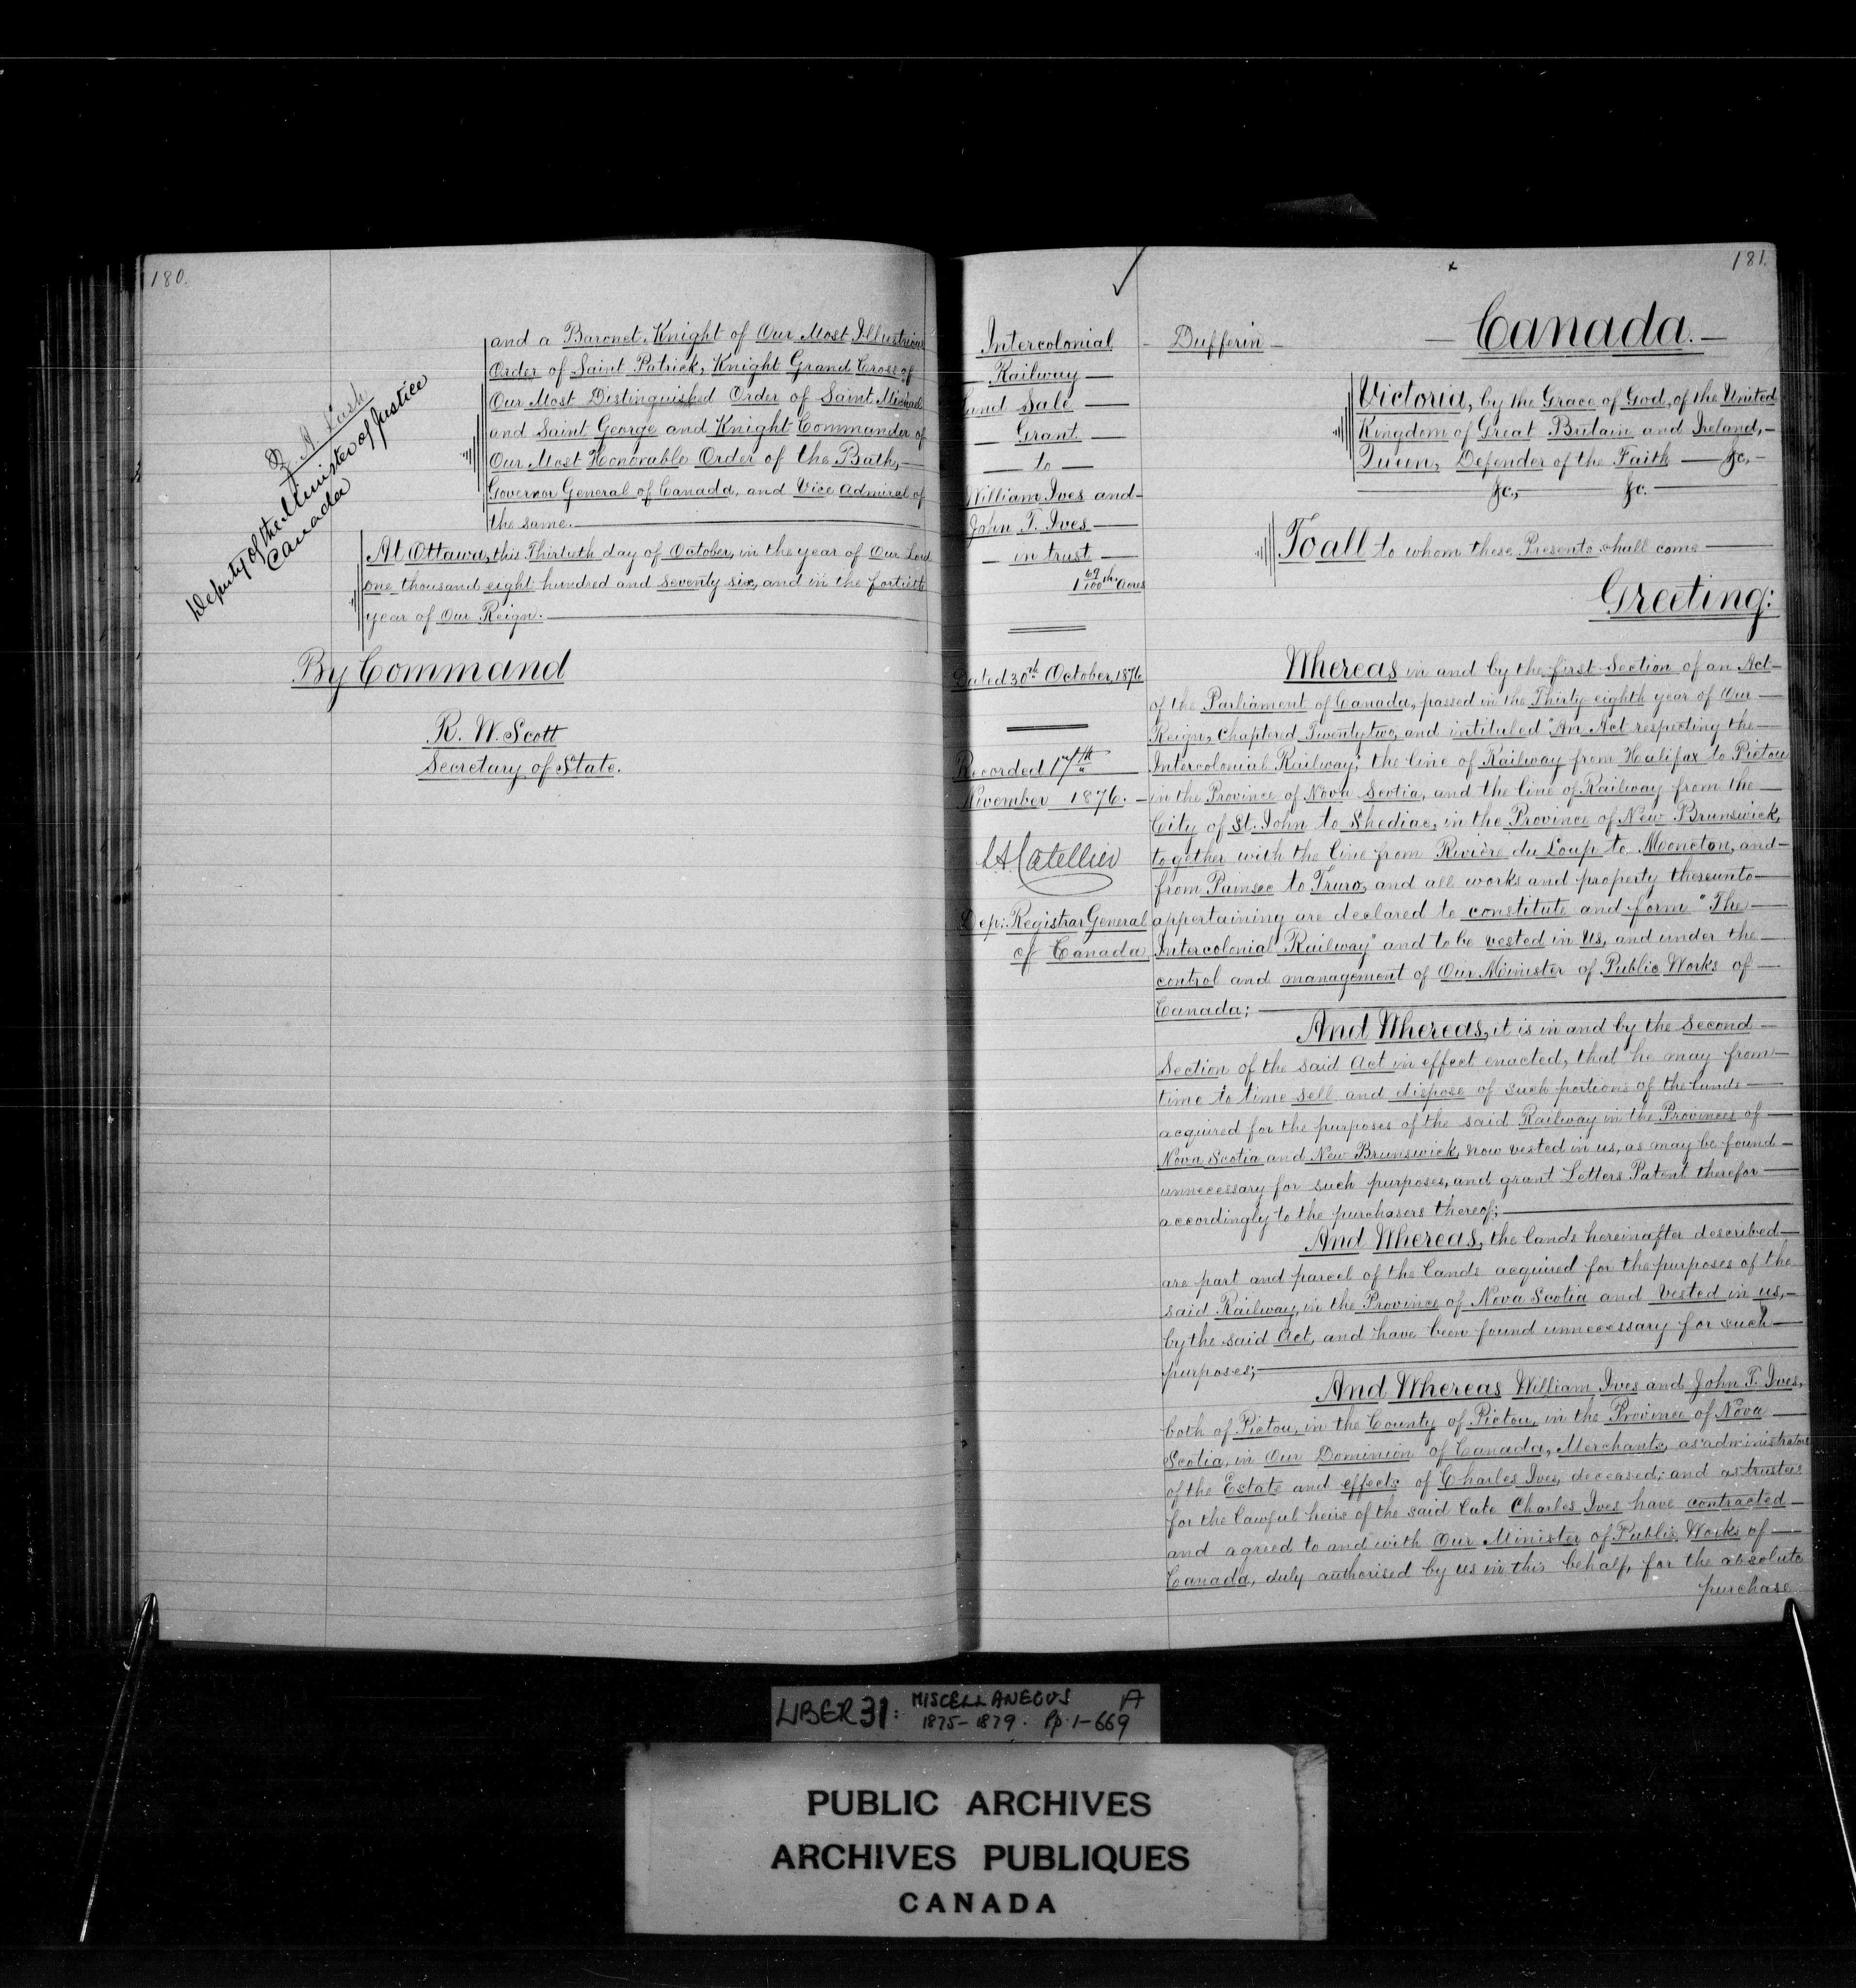 180.
and a Baronet, Knight of Our Most Illustrious
Order of Saint Patrick, Knight Grand Cross of
Our Most Distinguished Order of Saint Michael
and Saint George and Knight Commander of
Our Most Honorable Order of the Bath,
Governor General of Canada, and Vice Admiral of
the same.
At Ottawa, this Thirtieth day of October, in the year of Our Lord
one thousand eight hundred and seventy six, and in the fortieth
year of Our Reign.
Z. A. Lash
Deputy of the Minister of Justice
Canada
By Command
R. W. Scott
Secretary of State.
181.
Intercolonial
Railway
Land Sale
Grant
to
William Ives and
John T. Ives
in trust
1 69/100ths Acres
Dated 30th October, 1876
Recorded 17th
November 1876.
L A Catellier
Dep: Registrar General
of Canada
Dufferin
Canada.
Victoria, by the Grace of God, of the United
Kingdom of Great Britain and Ireland,
Queen, Defender of the Faith &c,
&c, &c.
To all to whom these Presents shall come
Greeting:
Whereas in and by the first Section of an Act
of the Parliament of Canada, passed in the Thirty eighth year of Our
Reign, Chaptered Twenty two, and intituled "An Act respecting the
Intercolonial Railway," the line of Railway from Halifax to Pictou
in the Province of Nova Scotia, and the line of Railway from the
City of St. John to Shediac, in the Province of New Brunswick,
together with the line from Rivière du Loup to Moncton, and
from Painsec to Truro, and all works and property thereunto
appertaining are declared to constitute and form "The
Intercolonial Railway" and to be vested in Us, and under the
control and management of Our Minister of Public Works of
Canada;
And Whereas, it is in and by the Second
Section of the said Act in effect enacted, that he may from
time to time sell and dispose of such portions of the lands
acquired for the purposes of the said Railway in the Provinces of
Nova Scotia and New Brunswick, now vested in us, as may be found
unnecessary for such purposes, and grant Letters Patent therefor
accordingly to the purchasers thereof;
And Whereas, the lands hereinafter described
are part and parcel of the lands acquired for the purposes of the
said Railway, in the Province of Nova Scotia and vested in us,
by the said Act, and have been found unnecessary for such
purposes;
And Whereas William Ives and John T. Ives,
both of Pictou, in the County of Pictou, in the Province of Nova
Scotia, in Our Dominion of Canada, Merchants, as administrators
of the Estate and effects of Charles Ives, deceased; and as trustees
for the lawful heirs of the said late Charles Ives have contracted
and agreed to and with Our Minister of Public Works of
Canada, duly authorised by us in this behalf, for the absolute
purchase
LIBER 31: MISCELLANEOUS A
1875-1879. Pp. 1-669
PUBLIC ARCHIVES
ARCHIVES PUBLIQUES
CANADA